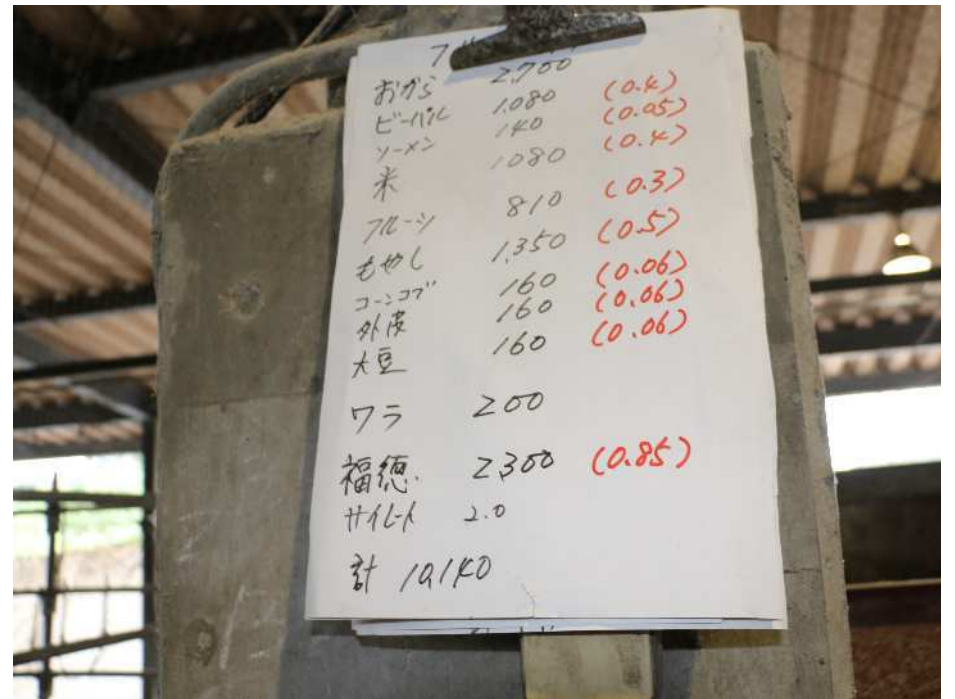 おから 2,700
ビーパル 1,080 (0.4)
ソーメン 140 (0.05)
米 1080 (0.4)
フルーツ 810 (0.3)
もやし 1,350 (0.5)
コーンコブ 160 (0.06)
外皮 160 (0.06)
大豆 160 (0.06)
ワラ 200
福徳. 2,300 (0.85)
サイレート 2.0
計 10,140